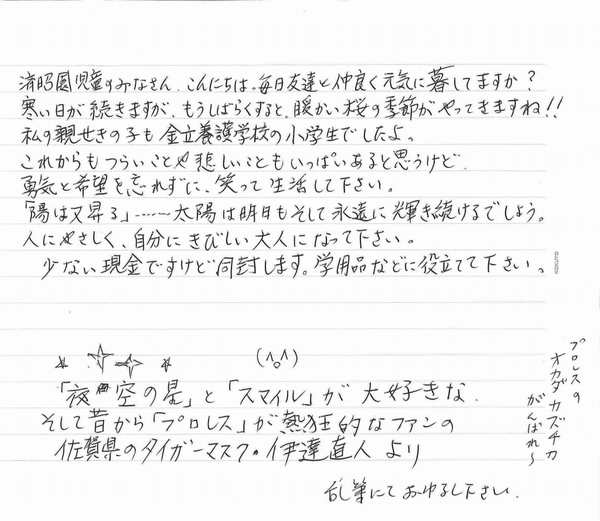 済昭園児童のみなさん、こんにちは。毎日友達と仲良く元気に暮してますか？
寒い日が続きますが、もうしばらくすると、暖かい桜の季節がやってきますね!!
私の親せきの子も金立養護学校の小学生でしたよ。
これからもつらいことや悲しいこともいっぱいあると思うけど、
勇気と希望を忘れずに、笑って生活して下さい。
「陽は又昇る」……太陽は明日もそして永遠に輝き続けるでしょう。
人にやさしく、自分にきびしい大人になって下さい。
少ない現金ですけど同封します。学用品などに役立てて下さい。
(^o^)
「夜空の星」と「スマイル」が大好きな
そして昔から「プロレス」が熱狂的なファンの
佐賀県のタイガーマスク・伊達直人より
乱筆にておゆるし下さい。
プロレスの
オカダカズチカ
がんばれ〜